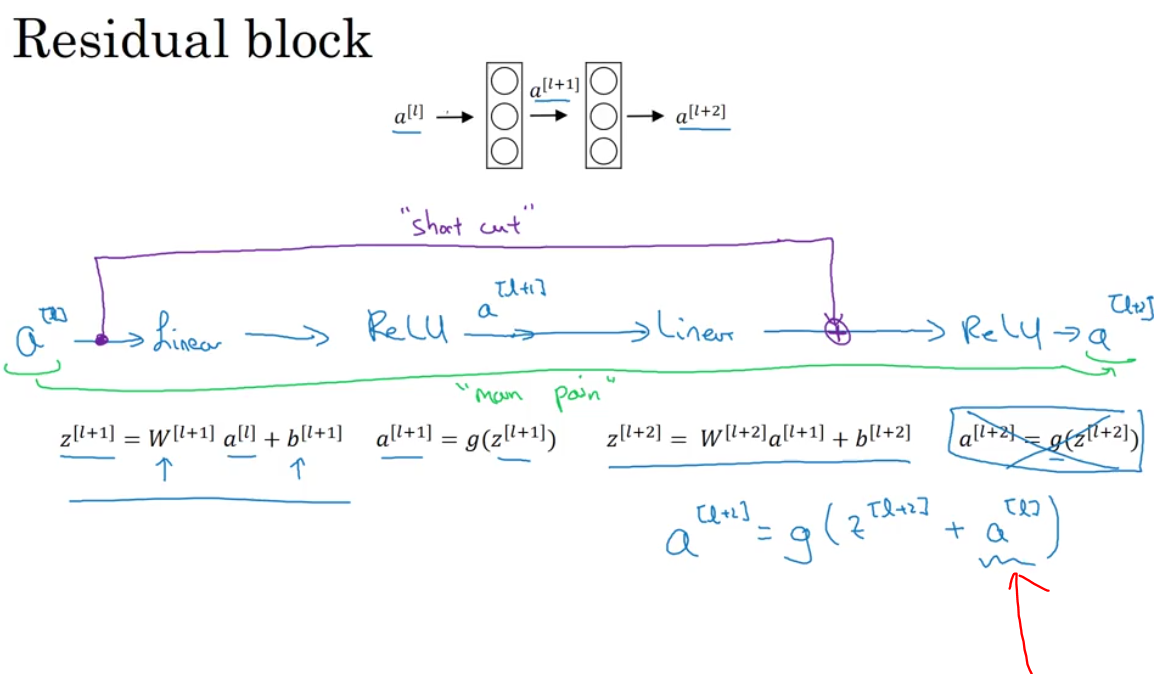 Residual block
a[l] a[l+1] a[l+2]
"short cut"
a[l] Linear ReLU a[l+1] Linear ReLU a[l+2]
"main
z[l+1] = W[l+1] a[l] + b[l+1] a[l+1] = g(z[l+1]) z[l+2] = W[l+2]a[l+1] + b[l+2] a[l+2] = g(z[l+2])
a[l+2] = g(z[l+2] + a[l])